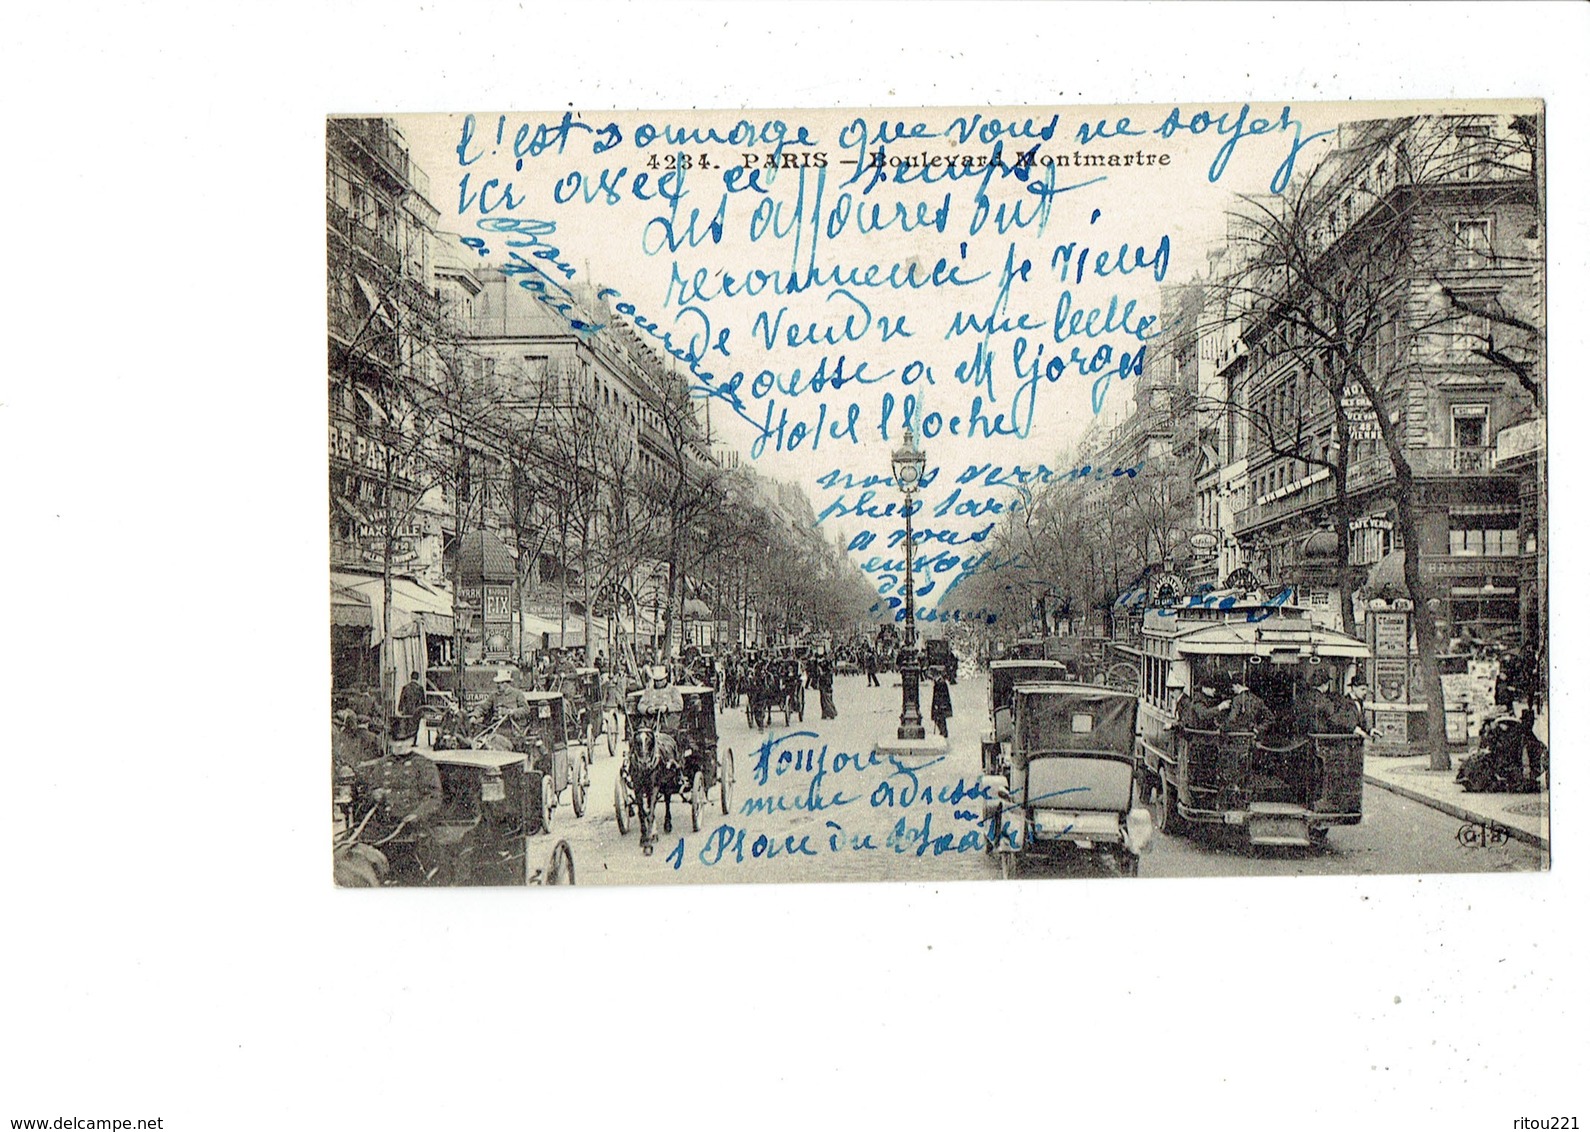 c'est dommage que vous ne soyez
4234. PARIS – Boulevard Montmartre
ici avec ce temps
Les affaires ont
recommencé je viens
de vendre une belle
caisse a M Gjorges
Hotel
Bon courage
a Tous
nous verrons
plus tard
a vous
envoyer
des
Toujours
meme adresse
1 Place du Théâtre
PIX
CAFÉ
BRASSERIE
ELD
www.delcampe.net
ritou221